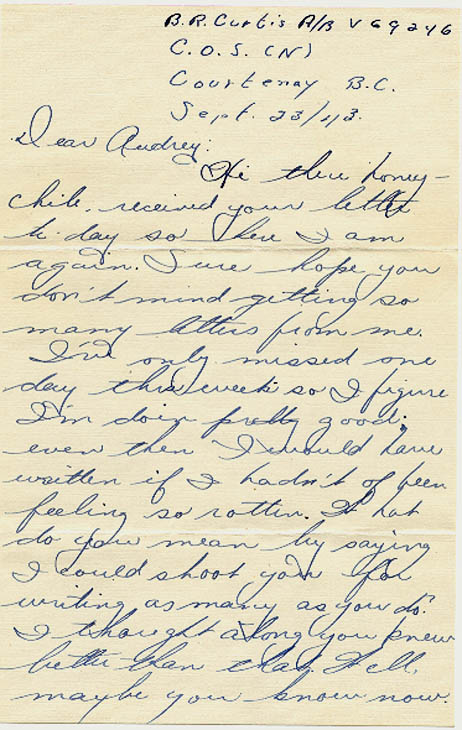 B.R. Curtis A/B V 69246
C.O.S. (N)
Courtenay B.C.
Sept. 23/43.
Dear Audrey:
Hi there honey-
chile, received your letter
to-day so here I am
again. Sure hope you
don't mind getting so
many letters from me.
I've only missed one
day this week so I figure
I'm doin pretty good;
even then I would have
written if I hadn't of been
feeling so rotten. What
do you mean by saying
I could shoot you for
writing as many as you do?
I thought along you knew
better than that. Well,
maybe you know now.